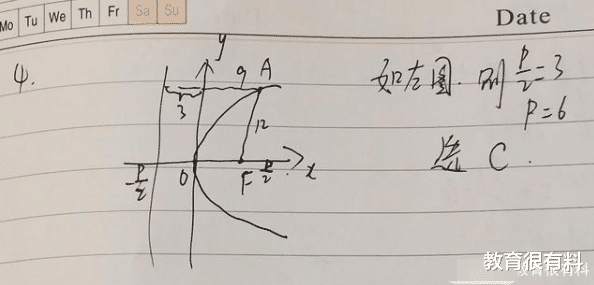 Mo Tu We Th Fr Sa Su
Date
4.
y
9 A
3
12
-p/2 O F p/2 x
如左图. 则 p/2=3
P=6
选 C.
教育很有料
教育很有料